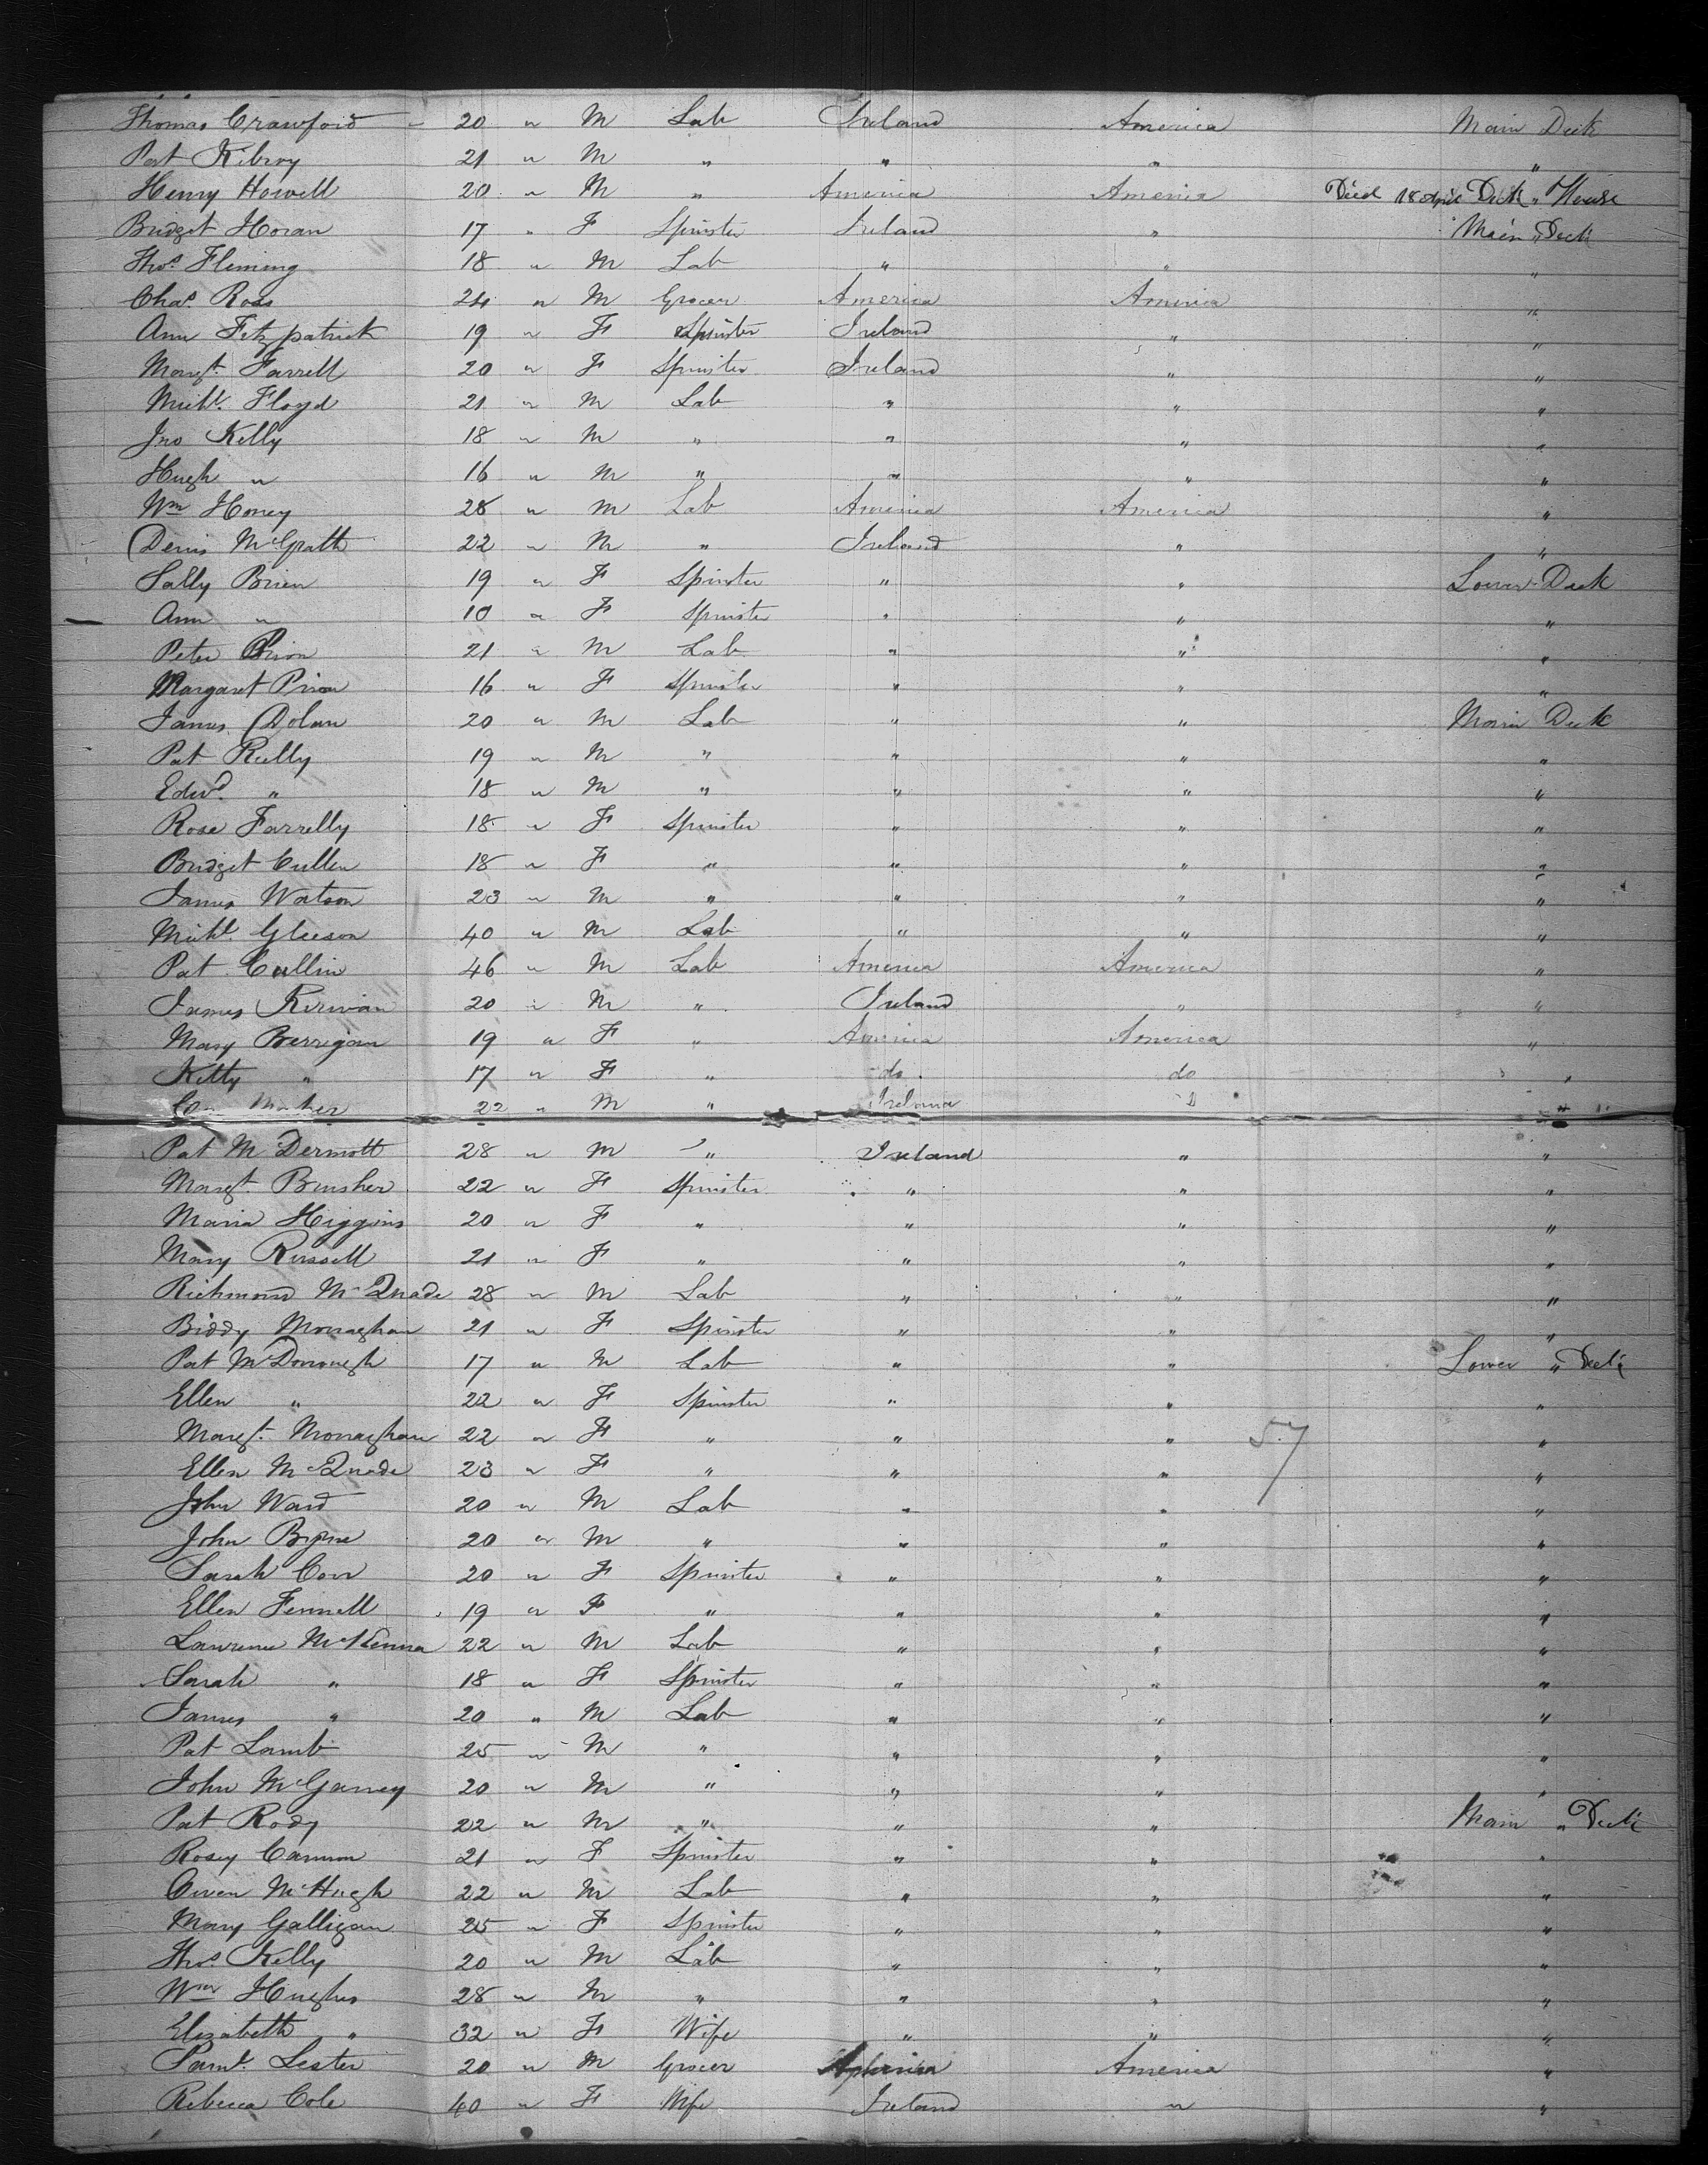 Thomas Crawford " 20 " M Lab Ireland America Main Deck
Pat Kilroy 21 " M " " " "
Henry Howell 20 " M " America America Died 18 April Deck " House
Bridget Horan 17 " F Spinster Ireland " Main " Deck
Thos Fleming 18 " M Lab " " "
Chas Ross 24 " M Grocer America America "
Ann Fitzpatrick 19 " F Spinster Ireland " "
Margt. Farrell 20 " F Spinster Ireland " "
Michl. Floyd 21 " M Lab " " "
Jno Kelly 18 " M " " " "
Hugh " 16 " M " " " "
Wm Honey 28 " M Lab America America "
Denis McGrath 22 " M " Ireland " "
Sally Brien 19 " F Spinster " " Lower Deck
Ann " 10 " F Spinster " " "
Peter Prior 21 " M Lab " " "
Margaret Prior 16 " F Spinster " " "
James Dolan 20 " M Lab " " Main Deck
Pat Reilly 19 " M " " " "
Edwd. " 18 " M " " " "
Rose Farrelly 18 " F Spinster " " "
Bridget Cullen 18 " F " " " "
James Watson 23 " M " " " "
Michl. Gleeson 40 " M Lab " " "
Pat Cullin 46 " M Lab America America "
James Kirwan 20 " M " Ireland " "
Mary Berrigan 19 " F " America America "
Kitty " 17 " F " do. do "
22 " M " Ireland "
Pat McDermott 28 " M " Ireland " "
Margt. Brusher 22 " F Spinster " " "
Maria Higgins 20 " F " " " "
Mary Russell 21 " F " " " "
Richmond McQuade 28 " M Lab " " "
Biddy Monaghan 21 " F Spinster " " "
Pat McDonough 17 " M Lab " " Lower " Deck
Ellen " 22 " F Spinster " " "
Margt. Monaghan 22 " F " " " 57 "
Ellen McQuade 23 " F " " " "
John Ward 20 " M Lab " " "
John Byrne 20 " M " " " "
Sarah Corr 20 " F Spinster " " "
Ellen Fennell 19 " F " " " "
Lawrence McKenna 22 " M Lab " " "
Sarah " 18 " F Spinster " " "
James " 20 " M Lab " " "
Pat Lamb 25 " M " " " "
John McGarvey 20 " M " " " "
Pat Rody 22 " M " " " Main " Deck
Rosey Cannon 21 " F Spinster " " "
Owen McHugh 22 " M Lab " " "
Mary Galligan 25 " F Spinster " " "
Thos Kelly 20 " M Lab " " "
Wm Hughes 28 " M " " " "
Elizabeth " 32 " F Wife " " "
Lester 20 " M Grocer America America "
Rebecca Cole 40 " F Wife Ireland " "